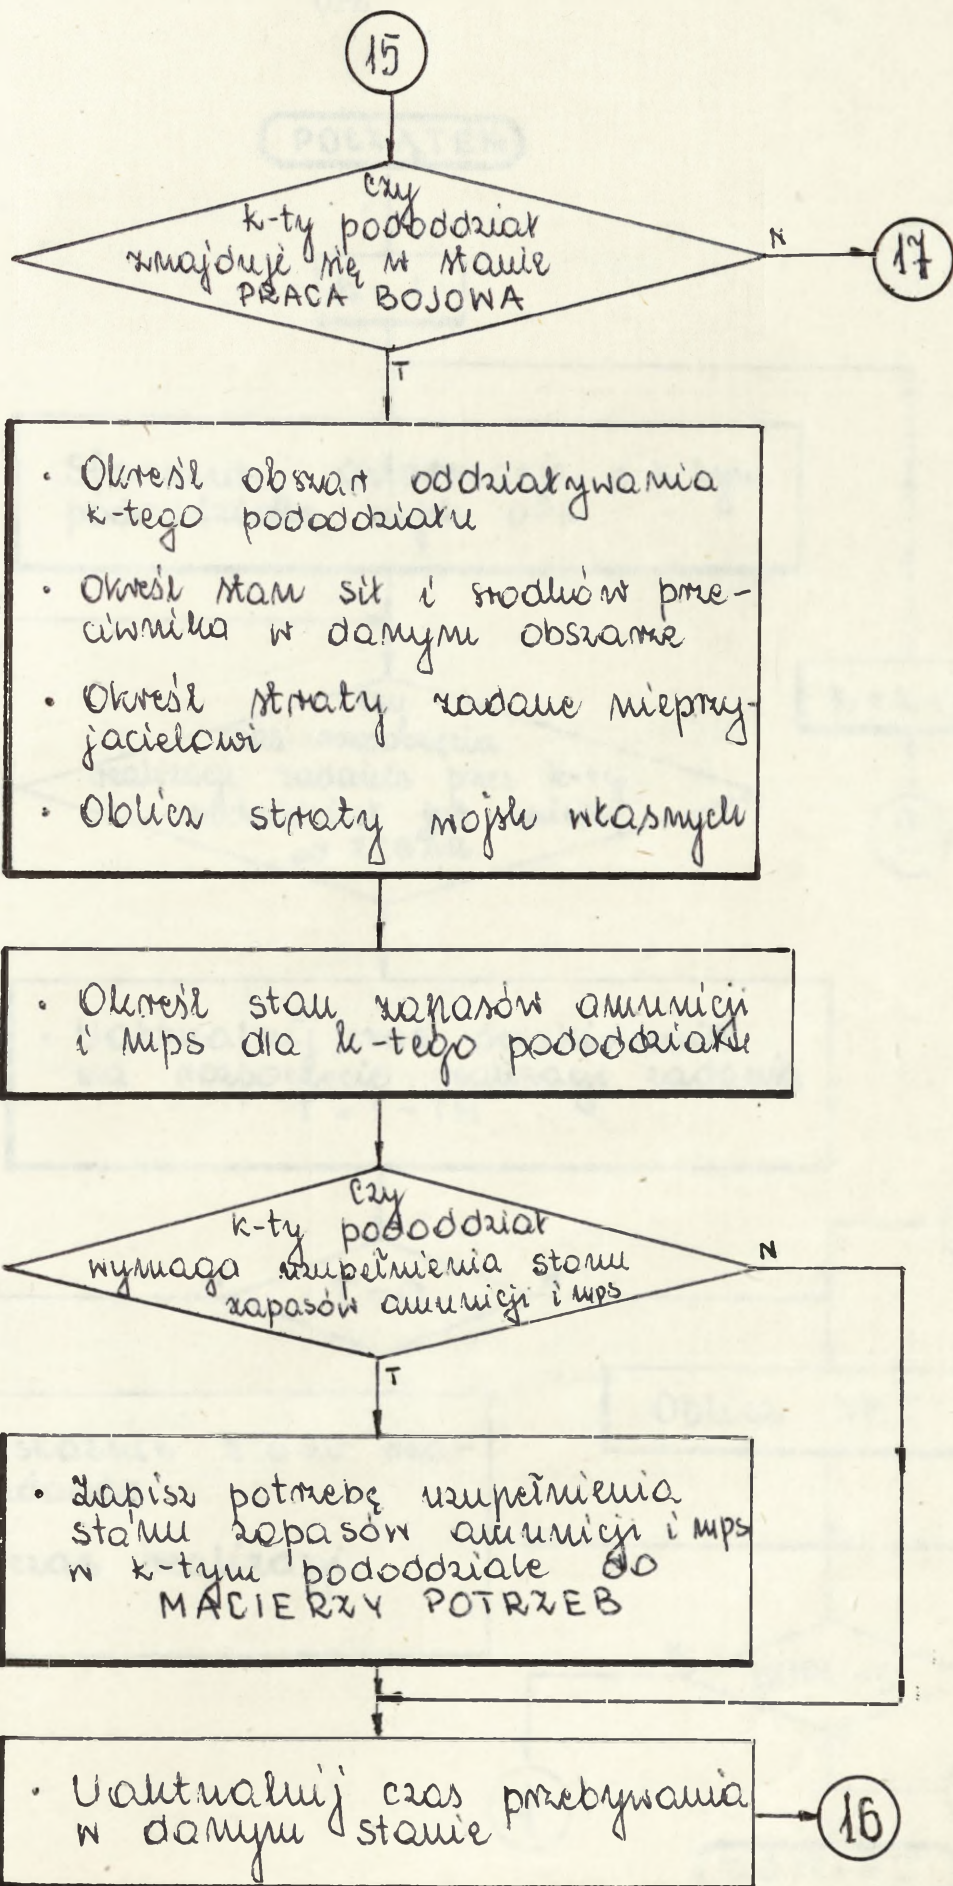 15
czy
k-ty pododdział
znajduje się w stanie
PRACA BOJOWA
N
17
T
• Określ obszar oddziaływania
k-tego pododdziału
• Określ stan sił i środków prze-
ciwnika w danym obszarze
• Określ straty zadane nieprzy-
jacielowi
• Oblicz straty wojsk własnych
• Określ stan zapasów amunicji
i mps dla k-tego pododdziału
czy
k-ty pododdział
wymaga uzupełnienia stanu
zapasów amunicji i mps
N
T
• Zapisz potrzebę uzupełnienia
stanu zapasów amunicji i mps
w k-tym pododdziale do
MACIERZY POTRZEB
• Uaktualnij czas przebywania
w danym stanie
16